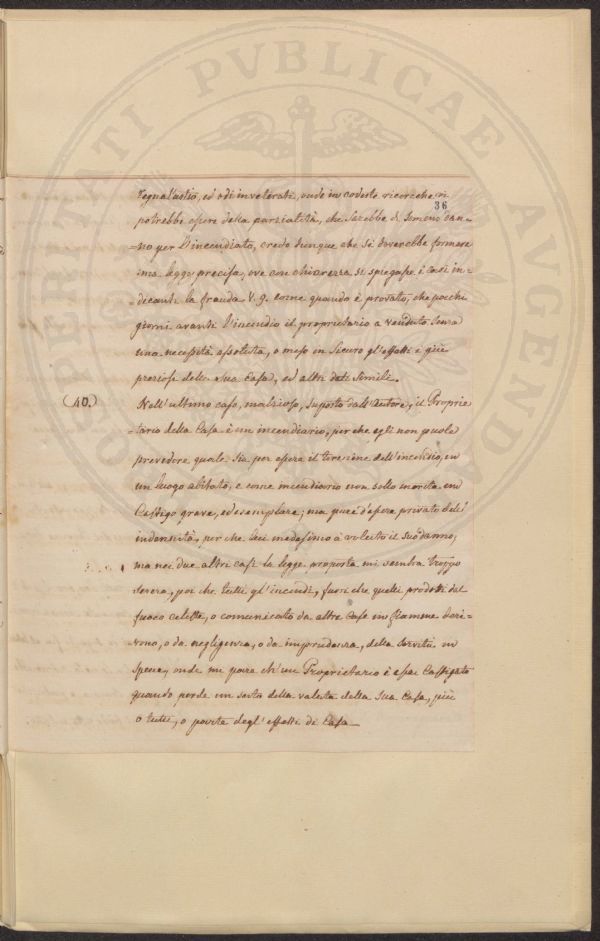 PROSPERITATI PVBLICAE AVGENDAE
36
regna l'astio, ed odi inveterati, onde in codeste ricerche vi
potrebbe essere della parzialità, che sarebbe di sommo dan=
=no per l'incendiato, credo dunque che si doverebbe formare
una legge precisa, ove con chiarezza si spiegasse i casi in=
decanti la frauda V. g. come quando è provato, che pochi
giorni avanti l'incendio il proprietario a venduto senza
una necessità assoluta, o messo in sicuro gl'effetti i più
preziosi della sua Casa, ed altri dati simili.
(40.) Nell'ultimo caso, malizioso, suposto dall'Autore, il Proprie
=tario della Casa è un incendiario, per che egli non puole
prevedere quale sia per essere il termine dell'incendio, in
un luogo abitato, e come incendiario non sollo merita un
Castigo grave, ed esemplare; ma pure d'essere privato dell'
indennità, per che lui medesimo à voluto il suo danno;
ma nei due altri casi la legge proposta mi sembra troppo
severa, poi che tutti gl'incendi, fuori che quelli prodotti dal
fuoco celeste, o comunicato da altre Case in fiamme deri=
=vono, o da negligenza, o da imprudenza, della servitù in
specie, onde mi pare ch'un Proprietario è assai Castigato
quando perde un sesto della valuta della sua Casa, più
o tutti, o parte degl'effetti di Casa